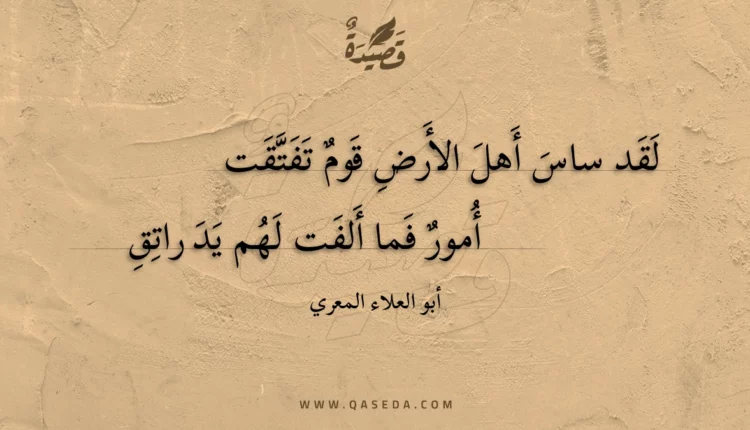 قَصِيدَةٌ
لَقَد ساسَ أَهلَ الأَرضِ قَومٌ تَفَتَّقَت
أُمورٌ فَما أَلفَت لَهُم يَدَ راتِقِ
أبو العلاء المعري
WWW.QASEDA.COM